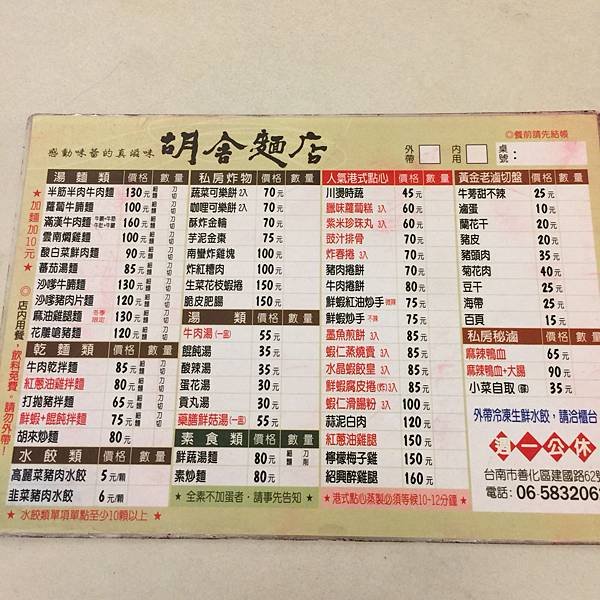 感動味蕾的真滋味 胡舍麵店
◎餐前請先結帳
外帶 内用 桌號：
湯麵類 價格 數量
半筋半肉牛肉麵 130元 細麵 刀切
蘿蔔牛腩麵 100元 細麵 刀切
滿漢牛肉麵 牛腩+牛筋 牛肚+牛腱 160元 細麵 刀切
雲南焗雞麵 100元 細麵 刀切
酸白菜鮮肉麵 90元 細麵 刀切
蕃茄湯麵 85元 細麵 刀切
沙嗲牛腩麵 130元 細麵 刀切
沙嗲豬肉片麵 120元 細麵 刀切
麻油雞腿麵 冬季限定 130元 細麵 刀切
花雕嗆豬麵 120元 細麵 刀切
乾麵類 價格 數量
牛肉乾拌麵 85元 細麵 刀切
紅蔥油雞拌麵 80元 細麵 刀切
打拋豬拌麵 65元 細麵 刀切
鮮蝦+餛飩拌麵 75元 細麵 刀切
胡來炒麵 80元
水餃類 價格 數量
高麗菜豬肉水餃 5元/顆
韭菜豬肉水餃 6元/顆
★水餃類單項單點至少10顆以上★
★加麵加10元★
◎店內用餐，飲料免費。請勿外帶！
私房炸物 價格 數量
蔬菜可樂餅 2入 70元
咖哩可樂餅 2入 70元
酥炸金輪 70元
芋泥金棗 75元
南蠻炸雞塊 100元
炸紅糟肉 100元
生菜花枝蝦捲 150元
脆皮肥腸 150元
湯類 價格 數量
牛肉湯(一固) 55元
餛飩湯 35元
酸辣湯 35元
蛋花湯 30元
貢丸湯 30元
藥膳鮮菇湯(一固) 55元
素食類 價格 數量
鮮蔬湯麵 80元 細麵 刀削
素炒麵 80元
★全素不加蛋者，請事先告知★
人氣港式點心 價格 數量
川燙時蔬 45元
臘味蘿蔔糕 3入 60元
紫米珍珠丸 3入 60元
豉汁排骨 70元
炸春捲 3入 70元
豬肉捲餅 70元
牛肉捲餅 80元
鮮蝦紅油炒手 微辣 75元
鮮蝦炒手 不辣 75元
墨魚煎餅 3入 80元
蝦仁蒸燒賣 3入 80元
水晶蝦餃皇 3入 80元
鮮蝦腐皮捲(炸)3入 85元
蝦仁滑腸粉 3入 100元
蒜泥白肉 120元
紅蔥油雞腿 150元
檸檬梅子雞 150元
紹興醉雞腿 160元
★港式點心蒸製必須等候10-12分鐘★
黃金老滷切盤 價格 數量
牛蒡甜不辣 25元
滷蛋 10元
蘭花干 20元
豬皮 20元
豬頭肉 35元
菊花肉 40元
豆干 25元
海帶 25元
百頁 15元
私房秘滷 價格 數量
麻辣鴨血 65元
麻辣鴨血+大腸 90元
小菜自取 (葷) 35元
外帶冷凍生鮮水餃，請洽櫃台
週一公休
台南市善化區建國路62號
電話：06 583206